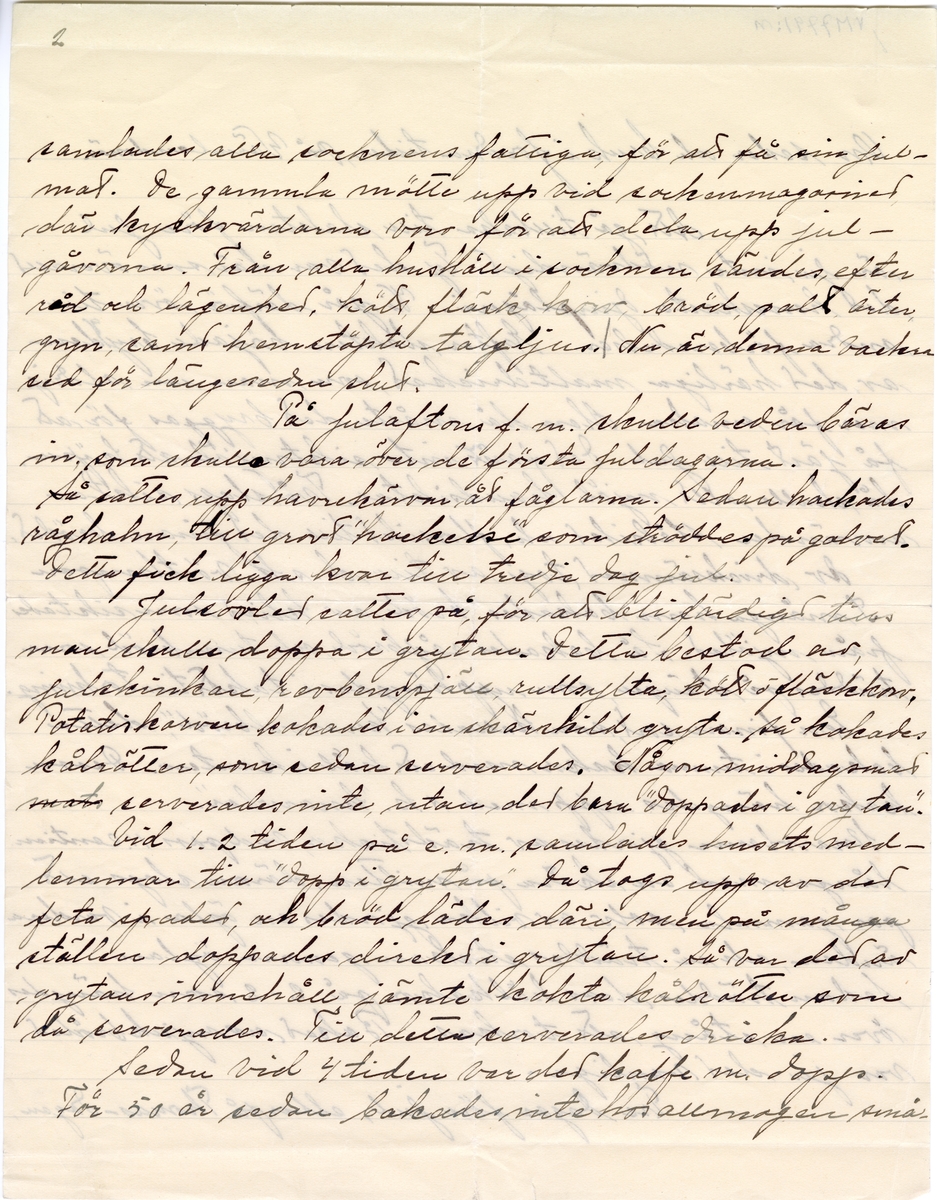 2
samlades alla socknens fattiga, för att få sin jul-
mat. De gammla mötte upp vid sockenmagasinet
där kyrkvärdarna voro för att dela upp jul-
gåvorna. Från alla hushåll i socknen sändes, efter
råd och lägenhet, kött, fläsk korv, bröd, palt ärter,
gryn, samt hemstöpta talgljus. Nu är denna vackra
sed för längesedan slut.
På julaftons f. m. skulle veden bäras
in, som skulle vara över de första juldagarna.
Så sattes upp havrekärvar åt fåglarna. Sedan hackades
råghalm, till grovt "hackelse" som ströddes på golvet.
Detta fick ligga kvar till tredje dag jul.
Julsovlet sattes på, för att bli färdigt tills
man skulle doppa i grytan. Detta bestod av,
julskinkan, revbensspjäll, rullsylta, kött o fläskkorv.
Potatiskorven kokades i en skärskild gryta. Så kokades
kålrötter, som sedan serverades. Någon middagsmat
serverades inte, utan det bara "doppades i grytan".
Vid 1. 2 tiden på e. m. samlades husets med-
lemmar till "dopp i grytan". Då togs upp av det
feta spadet, och bröd lades däri, men på många
ställen doppades direkt i grytan. Så var det av
grytans innehåll jämte kokta kålrötter som
då serverades. Till detta serverades dricka.
Sedan vid 4 tiden var det kaffe m. dopp.
För 50 år sedan bakades inte hos allmogen små-